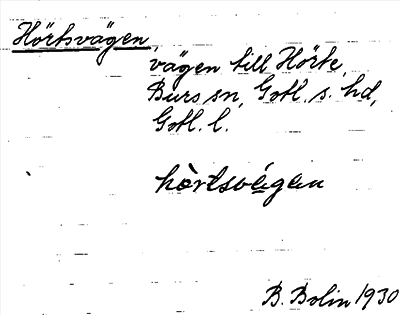 Hörtsvägen,
vägen till Hörte,
Burs sn, Gotl. s. hd,
Gotl. l.
hòrtsvágan
B. Bolin 1930